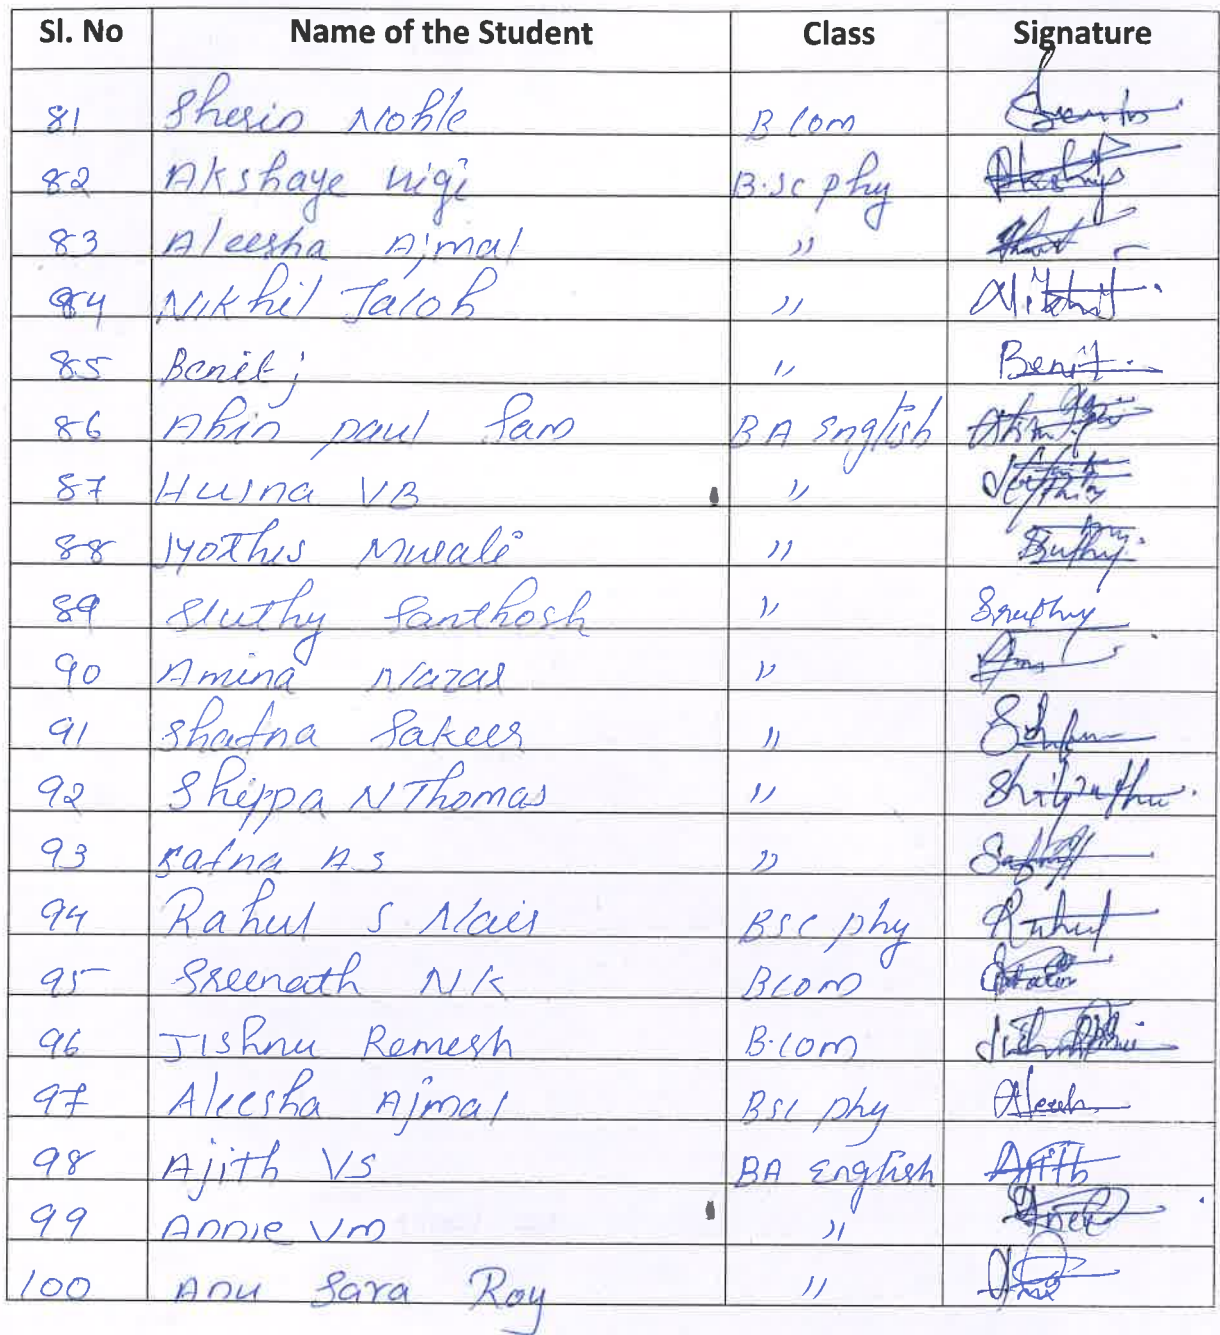 Sl. No Name of the Student Class Signature
81 Sherin Noble B Com
82 Akshaye Nigi B.Sc phy Akshay
83 Aleesha Ajmal ,,
84 Nikhil Jacob ,, Nikhil
85 Benit j ,, Benit
86 Abin paul Sam BA English Abin
87 Husna VB ,,
88 Jyothis Murali ,,
89 Sruthy Santhosh ,, Sruthy
90 Amina Nazar ,,
91 Shafna Sakeer ,,
92 Shippa N Thomas ,,
93 Safna A S ,,
94 Rahul S Nair BSC phy Rahul
95 Sreenath N K BCom
96 Jishnu Remesh B.Com
97 Aleesha Ajmal BSc phy
98 Ajith VS BA English Ajith
99 Annie Vm ,,
100 Anu Sara Roy ,,